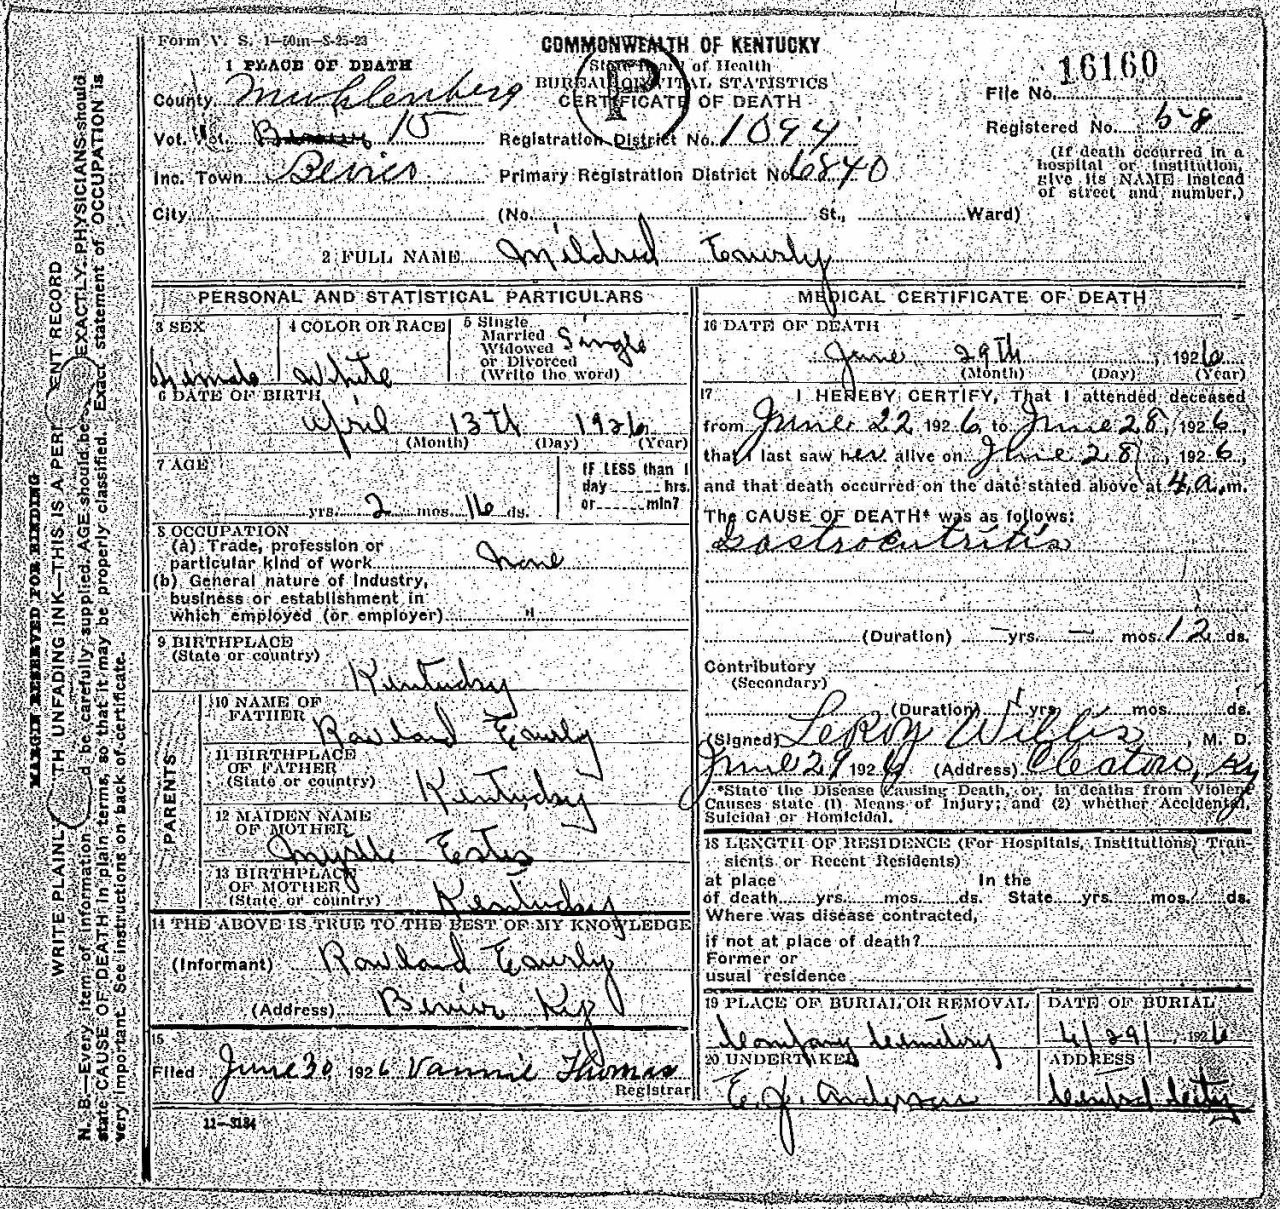 Form V. S. 1—50m—8-25-23
COMMONWEALTH OF KENTUCKY
State Board of Health
BUREAU OF VITAL STATISTICS
CERTIFICATE OF DEATH
P
16160
File No.
Registered No. 58
(If death occurred in a
hospital or institution,
give its NAME instead
of street and number.)
1 PLACE OF DEATH
County Muhlenberg
Vot. Pct. 15 Registration District No. 1094
Inc. Town Bevier Primary Registration District No. 6840
City (No. St., Ward)
2 FULL NAME Mildred
PERSONAL AND STATISTICAL PARTICULARS
3 SEX
Female
4 COLOR OR RACE
White
5 Single
Married
Widowed
or Divorced
(Write the word)
Single
6 DATE OF BIRTH
April 13th 1926
(Month) (Day) (Year)
7 AGE
yrs. 2 mos. 16 ds.
IF LESS than 1
day hrs.
or min?
8 OCCUPATION
(a) Trade, profession or
particular kind of work None
(b) General nature of Industry,
business or establishment in
which employed (or employer) "
9 BIRTHPLACE
(State or country)
Kentucky
PARENTS
10 NAME OF
FATHER
Rowland
11 BIRTHPLACE
OF FATHER
(State or country)
Kentucky
12 MAIDEN NAME
OF MOTHER
Myrtle Estes
13 BIRTHPLACE
OF MOTHER
(State or country)
Kentucky
14 THE ABOVE IS TRUE TO THE BEST OF MY KNOWLEDGE
(Informant) Rowland
(Address) Bevier Ky
15
Filed June 30 1926 Vannie Thomas
Registrar
11—3184
MEDICAL CERTIFICATE OF DEATH
16 DATE OF DEATH
June 29th, 1926
(Month) (Day) (Year)
17 I HEREBY CERTIFY, That I attended deceased
from June 22, 1926, to June 28, 1926,
that I last saw her alive on June 28, 1926,
and that death occurred on the date stated above at 4 a.m.
The CAUSE OF DEATH* was as follows:
Gastroentritis
(Duration) — yrs. — mos. 12 ds.
Contributory
(Secondary)
(Duration) yrs. mos. ds.
(Signed) LeRoy Willis, M. D.
June 29 1926 (Address) Cleaton, Ky
*State the Disease Causing Death, or, in deaths from Violent
Causes state (1) Means of Injury; and (2) whether Accidental,
Suicidal or Homicidal.
18 LENGTH OF RESIDENCE (For Hospitals, Institutions, Tran-
sients or Recent Residents)
at place In the
of death yrs. mos. ds. State yrs. mos. ds.
Where was disease contracted,
if not at place of death?
Former or
usual residence
19 PLACE OF BURIAL OR REMOVAL
Company Cemetery
DATE OF BURIAL
6/29/, 1926
20 UNDERTAKER
E. J. Anderson
ADDRESS
Central City
MARGIN RESERVED FOR BINDING
WRITE PLAINLY WITH UNFADING INK—THIS IS A PERMANENT RECORD
N. B.—Every item of information should be carefully supplied. AGE should be EXACTLY. PHYSICIANS should
state CAUSE OF DEATH in plain terms, so that it may be properly classified. Exact statement of OCCUPATION is
very important. See instructions on back of certificate.